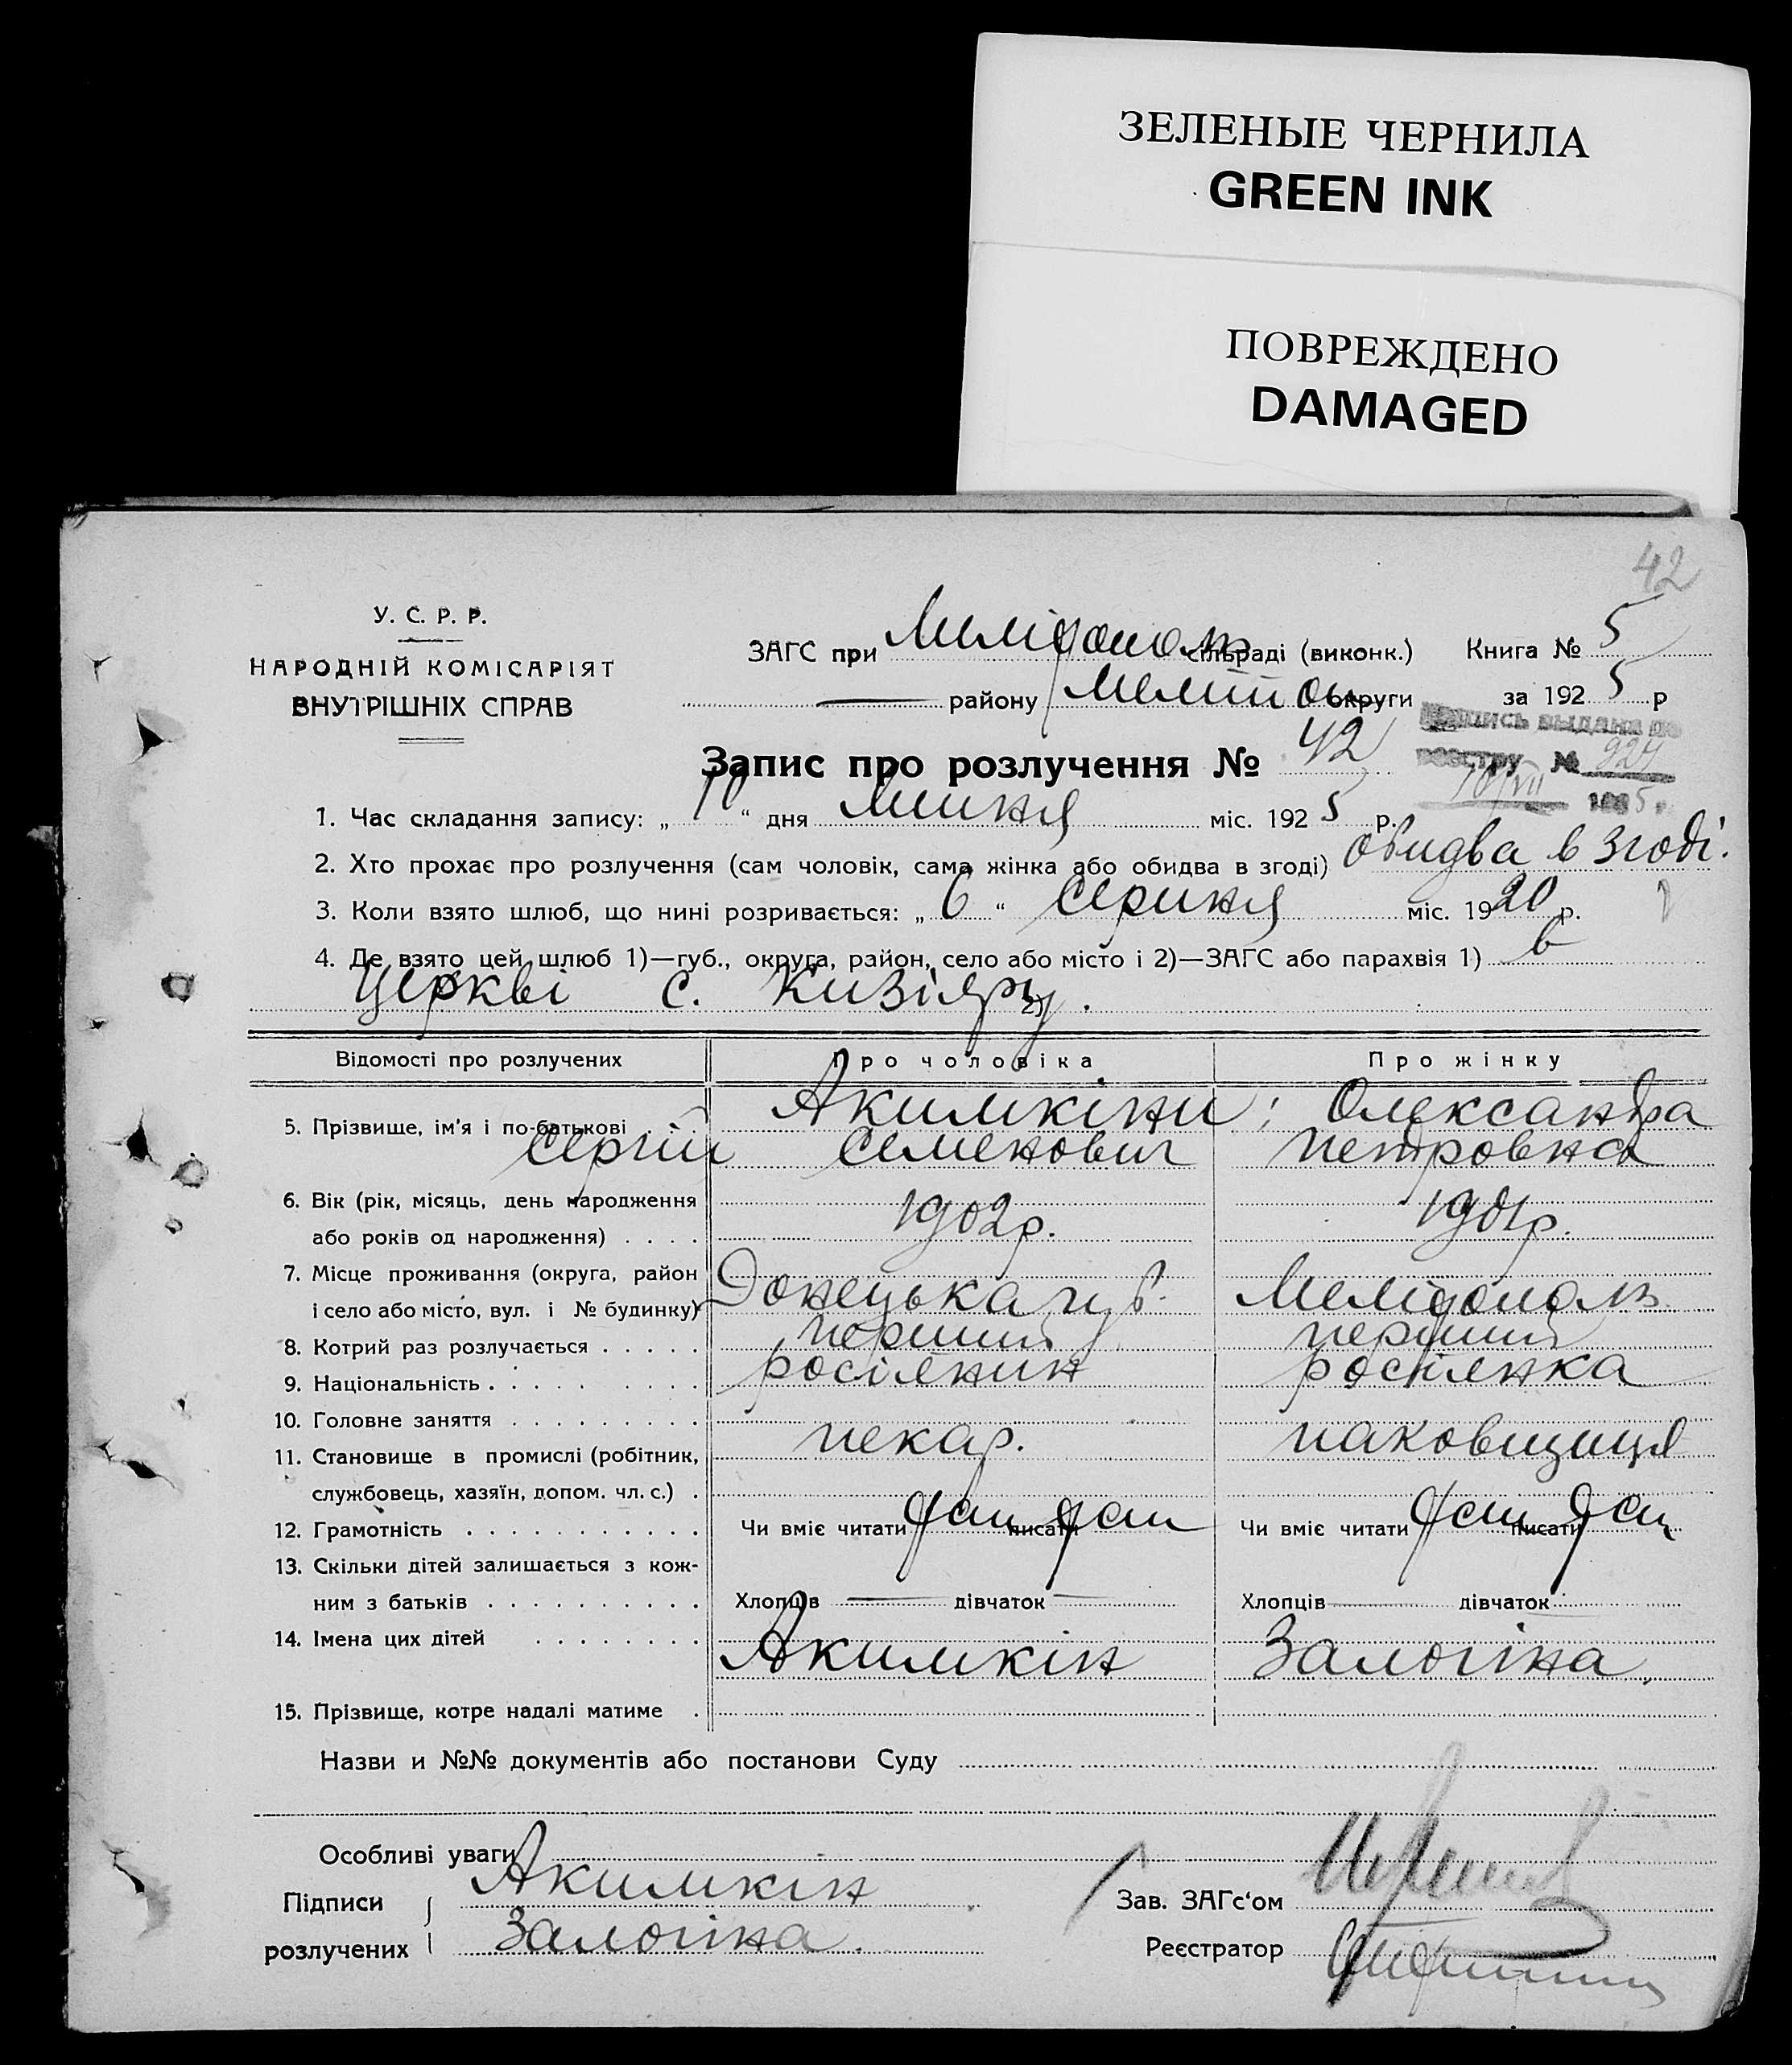 ЗЕЛЕНЫЕ ЧЕРНИЛА
GREEN INK
ПОВРЕЖДЕНО
DAMAGED
42
У. С. Р. Р.
НАРОДНІЙ КОМІСАРІЯТ
ВНУТРІШНІХ СПРАВ
ЗАГС при Мелітополь сільраді (виконк.) Книга № 5
району Меліток округи за 1925 р
выдана по
реестру № 924
10/VII 1925 г.
Запис про розлучення № 42
1. Час складання запису: „10“ дня Липня міс. 1925 р.
2. Хто прохає про розлучення (сам чоловік, сама жінка або обидва в згоді) обидва в згоді.
3. Коли взято шлюб, що нині розривається: „6“ Серпня міс. 1920 р.
4. Де взято цей шлюб 1)—губ., округа, район, село або місто і 2)—ЗАГС або парахвія 1) в
церкві с. Кизіяру. 2)
Відомості про розлучених Про чоловіка Про жінку
5. Прізвище, ім'я і по-батькові Акимкіни: Олександра
Сергій Семенович Петровна
6. Вік (рік, місяць, день народження
або років од народження) 1902р. 1901р.
7. Місце проживання (округа, район
і село або місто, вул. і № будинку) Донецька губ. Мелітополь
8. Котрий раз розлучається перший перший
9. Національність росіянин росіянка
10. Головне заняття пекар. паковщиця
11. Становище в промислі (робітник,
службовець, хазяїн, допом. чл. с.)
12. Грамотність Чи вміє читати так писати так Чи вміє читати так писати так
13. Скільки дітей залишається з кож-
ним з батьків Хлопців — дівчаток — Хлопців — дівчаток
14. Імена цих дітей
Акимкін Залогіна
15. Прізвище, котре надалі матиме
Назви и №№ документів або постанови Суду
Особливі уваги
Підписи Акимкін Зав. ЗАГс'ом
розлучених Залогіна. Реєстратор